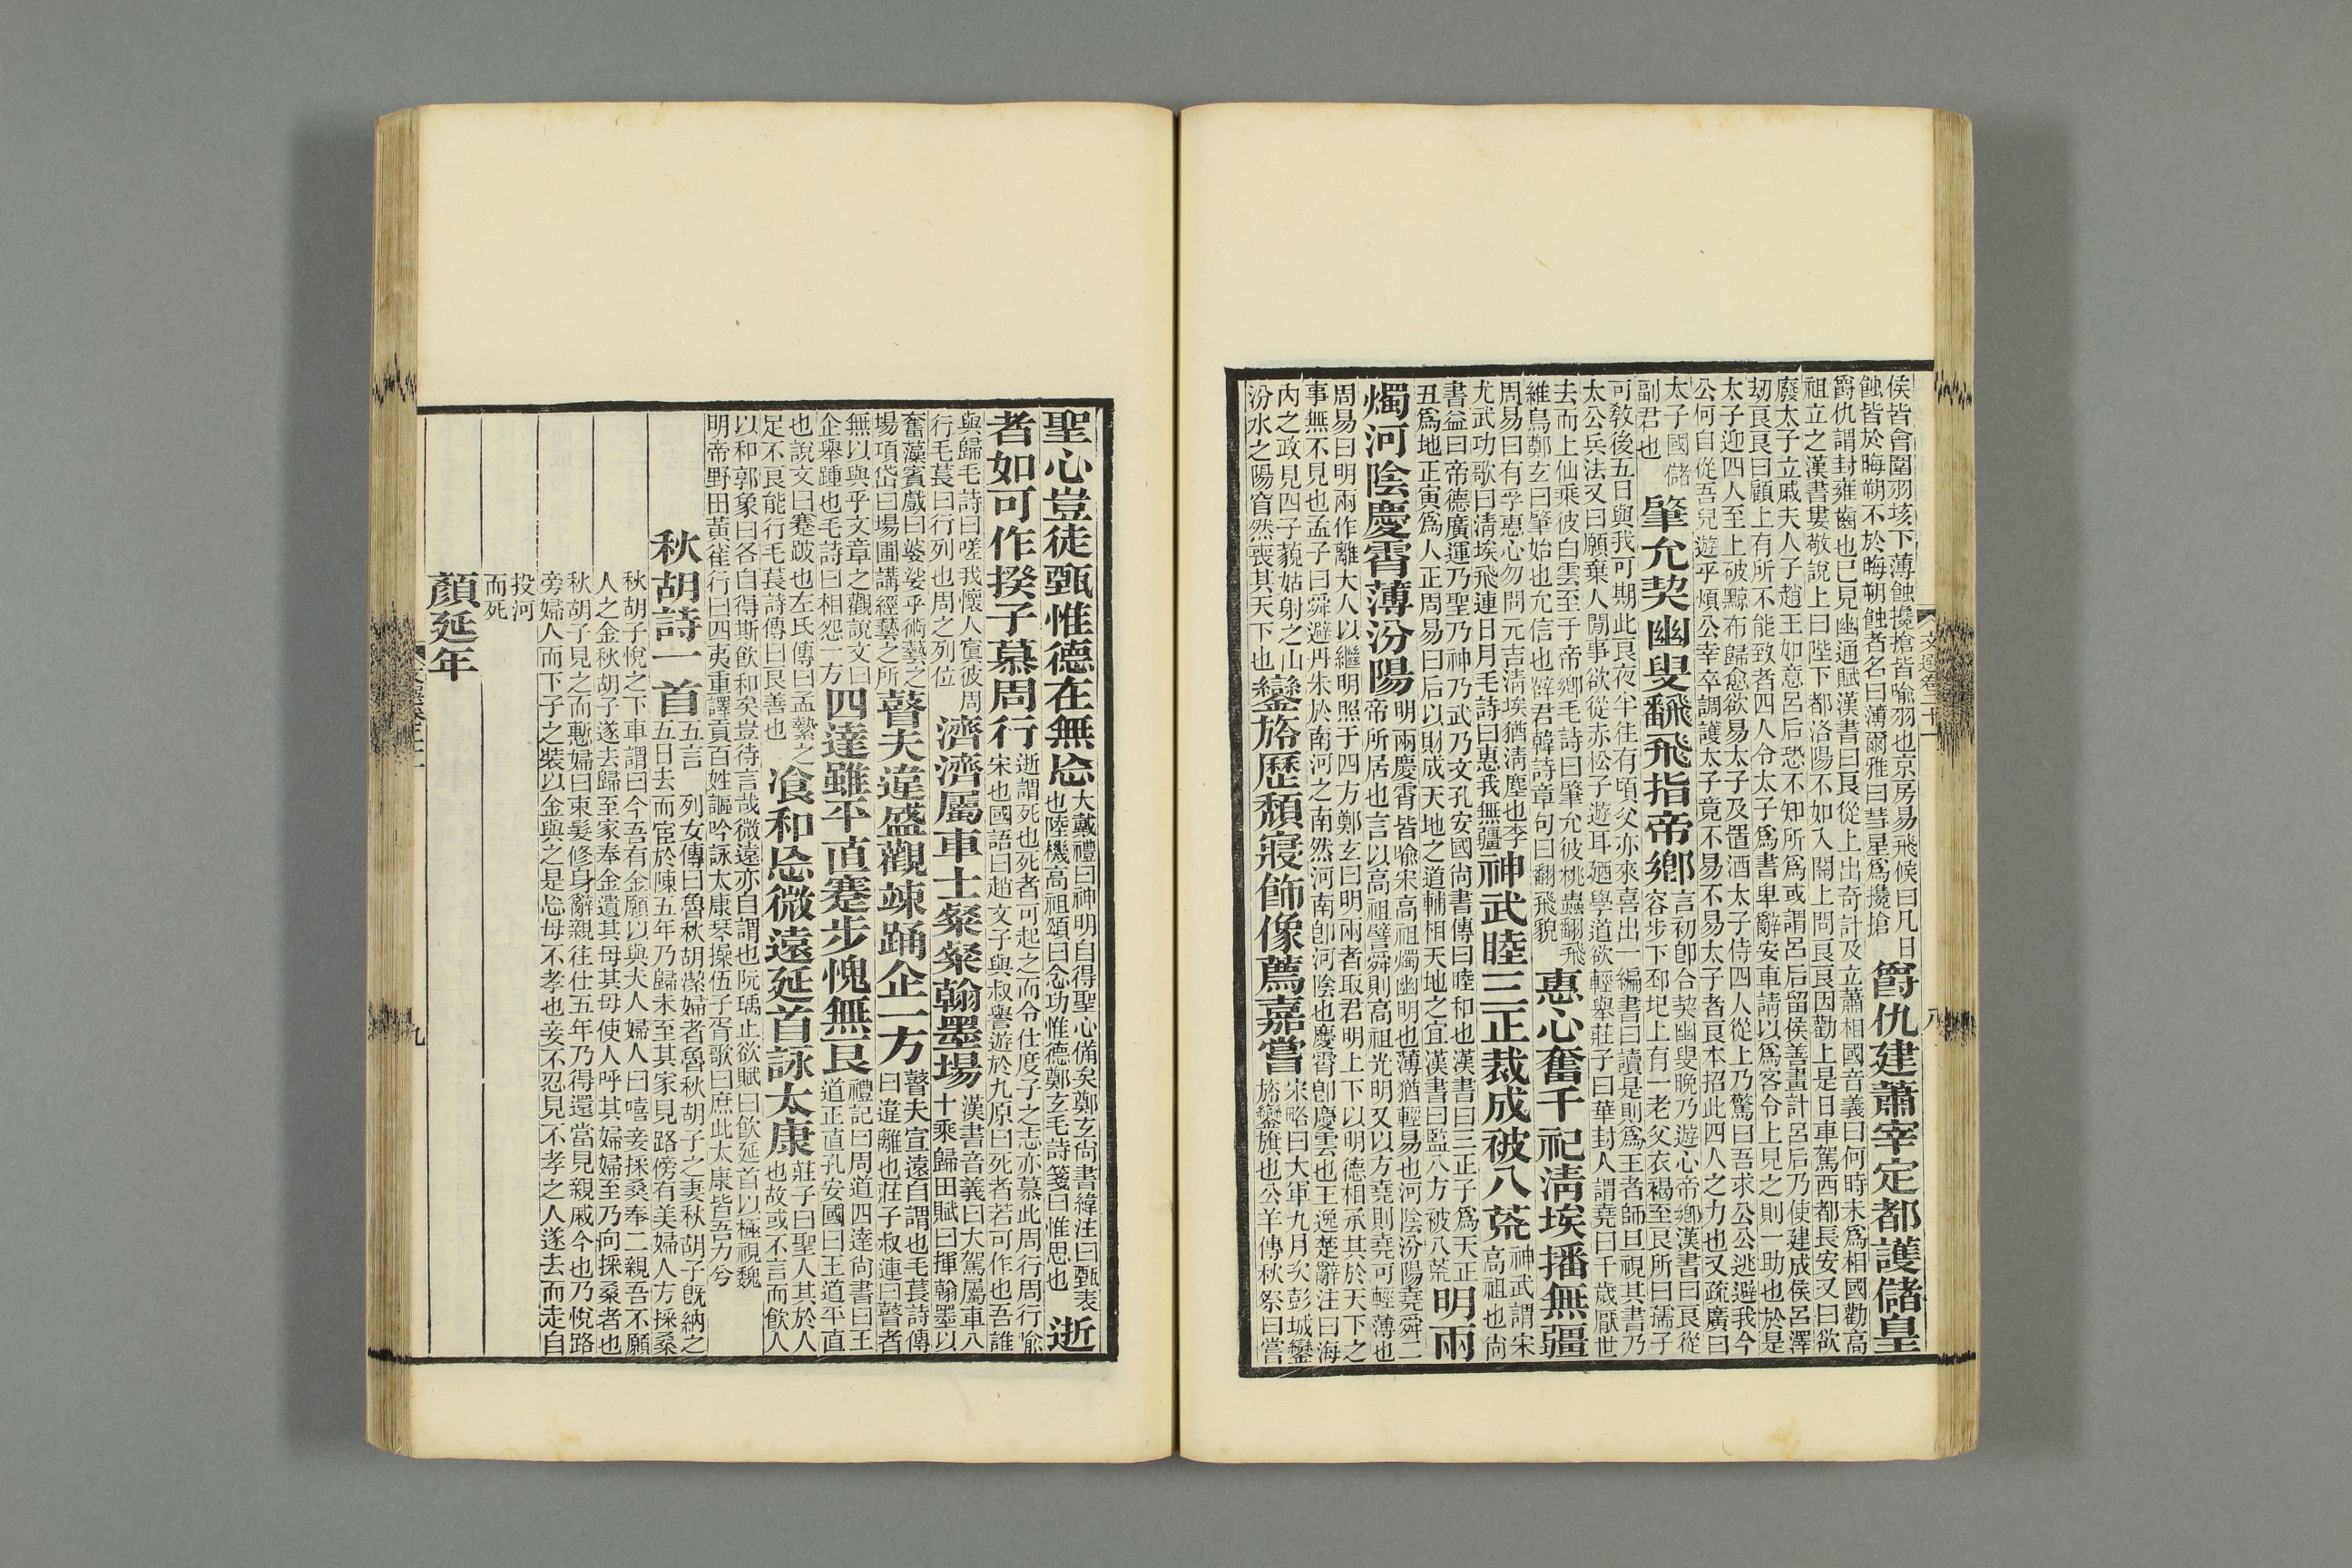 侯皆會圍羽垓下薄蝕攙搶皆喻羽也京房易飛候曰凡日
蝕皆於晦朔不於晦朔蝕者名曰薄爾雅曰彗星爲攙搶
爵仇建蕭宰定都護儲皇
爵仇謂封雍齒也已見幽通賦漢書曰良從上出奇計及立蕭相國音義曰何時未爲相國勸高
祖立之漢書婁敬說上曰陛下都洛陽不如入關上問良良因勸上是日車駕西都長安又曰欲
廢太子立戚夫人子趙王如意呂后恐不知所爲或謂呂后留侯善畫計呂后乃使建成侯呂澤
刼良良曰顧上有所不能致者四人令太子爲書卑辭安車請以爲客令上見之則一助也於是
太子迎四人至上破黥布歸愈欲易太子及置酒太子侍四人從上乃驚曰吾求公公逃避我今
公何自從吾兒遊乎煩公幸卒調護太子竟不易不易太子者良本招此四人之力也又疏廣曰
太子國儲
副君也
肇允契幽叟飜飛指帝鄉
言初卽合契幽叟晚乃遊心帝鄉漢書曰良從
容步下邳圯上有一老父衣褐至良所曰孺子
可敎後五日與我可期此良夜半往有頃父亦來喜出一編書曰讀是則爲王者師旦視其書乃
太公兵法又曰願棄人閒事欲從赤松子遊耳廼學道欲輕舉莊子曰華封人謂堯曰千歲厭世
去而上仙乘彼白雲至于帝鄉毛詩曰肇允彼桃蟲翻飛
維鳥鄭玄曰肇始也允信也薛君韓詩章句曰翻飛貌
惠心奮千祀淸埃播無疆
周易曰有孚惠心勿問元吉淸埃猶淸塵也李
尤武功歌曰淸埃飛連日月毛詩曰惠我無疆
神武睦三正裁成被八荒
神武謂宋
高祖也尚
書益曰帝德廣運乃聖乃神乃武乃文孔安國尚書傳曰睦和也漢書曰三正子爲天正
丑爲地正寅爲人正周易曰后以財成天地之道輔相天地之宜漢書曰監八方被八荒
明兩
燭河陰慶霄薄汾陽
明兩慶霄皆喻宋高祖燭幽明也薄猶輕易也河陰汾陽堯舜二
帝所居也言以高祖譬舜則高祖光明又以方堯則堯可輕薄也
周易曰明兩作離大人以繼明照于四方鄭玄曰明兩者取君明上下以明德相承其於天下之
事無不見也孟子曰舜避丹朱於南河之南然河南卽河陰也慶霄卽慶雲也王逸楚辭注曰海
內之政見四子藐姑射之山
汾水之陽窅然喪其天下也
鑾旂歷頹寢飾像薦嘉嘗
宋略曰大軍九月次彭城鑾
旂鑾旗也公羊傳秋祭曰嘗
文選卷二十一
八
聖心豈徒甄惟德在無忘
大戴禮曰神明自得聖心備矣鄭玄尚書緯注曰甄表
也陸機高祖頌曰念功惟德鄭玄毛詩箋曰惟思也
逝
者如可作揆子慕周行
逝謂死也死者可起之而令仕度子之志亦慕此周行周行喻
宋也國語曰趙文子與叔譽遊於九原曰死者若可作也吾誰
與歸毛詩曰嗟我懷人寘彼周
行毛萇曰行列也周之列位
濟濟屬車士粲粲翰墨場
漢書音義曰大駕屬車八
十乘歸田賦曰揮翰墨以
奮藻賓戲曰婆娑乎術藝之
場項岱曰場圃講經藝之所
瞽夫違盛觀竦踊企一方
瞽夫宣遠自謂也毛萇詩傳
曰違離也莊子叔連曰瞽者
無以與乎文章之觀說文曰
企舉踵也毛詩曰相怨一方
四達雖平直蹇步愧無良
禮記曰周道四達尚書曰王
道正直孔安國曰王道平直
也說文曰蹇跛也左氏傳曰孟縶之
足不良能行毛萇詩傳曰良善也
飡和忘微遠延首詠太康
莊子曰聖人其於人
也故或不言而飲人
以和郭象曰各自得斯飲和矣豈待言哉微遠亦自謂也阮瑀止欲賦曰飲延首以極視魏
明帝野田黃雀行曰四夷重譯貢百姓謳吟詠太康琴操伍子胥歌曰庶此太康皆吾力兮
秋胡詩一首
五言 列女傳曰魯秋胡潔婦者魯秋胡子之妻秋胡子旣納之
五日去而宦於陳五年乃歸未至其家見路傍有美婦人方採桑
秋胡子悅之下車謂曰今吾有金願以與夫人婦人曰嘻妾採桑奉二親吾不願
人之金秋胡子遂去歸至家奉金遺其母其母使人呼其婦婦至乃向採桑者也
秋胡子見之而慙婦曰束髮修身辭親往仕五年乃得還當見親戚今也乃悅路
旁婦人而下子之裝以金與之是忘母不孝也妾不忍見不孝之人遂去而走自
投河
而死
顏延年
文選卷二十一
九